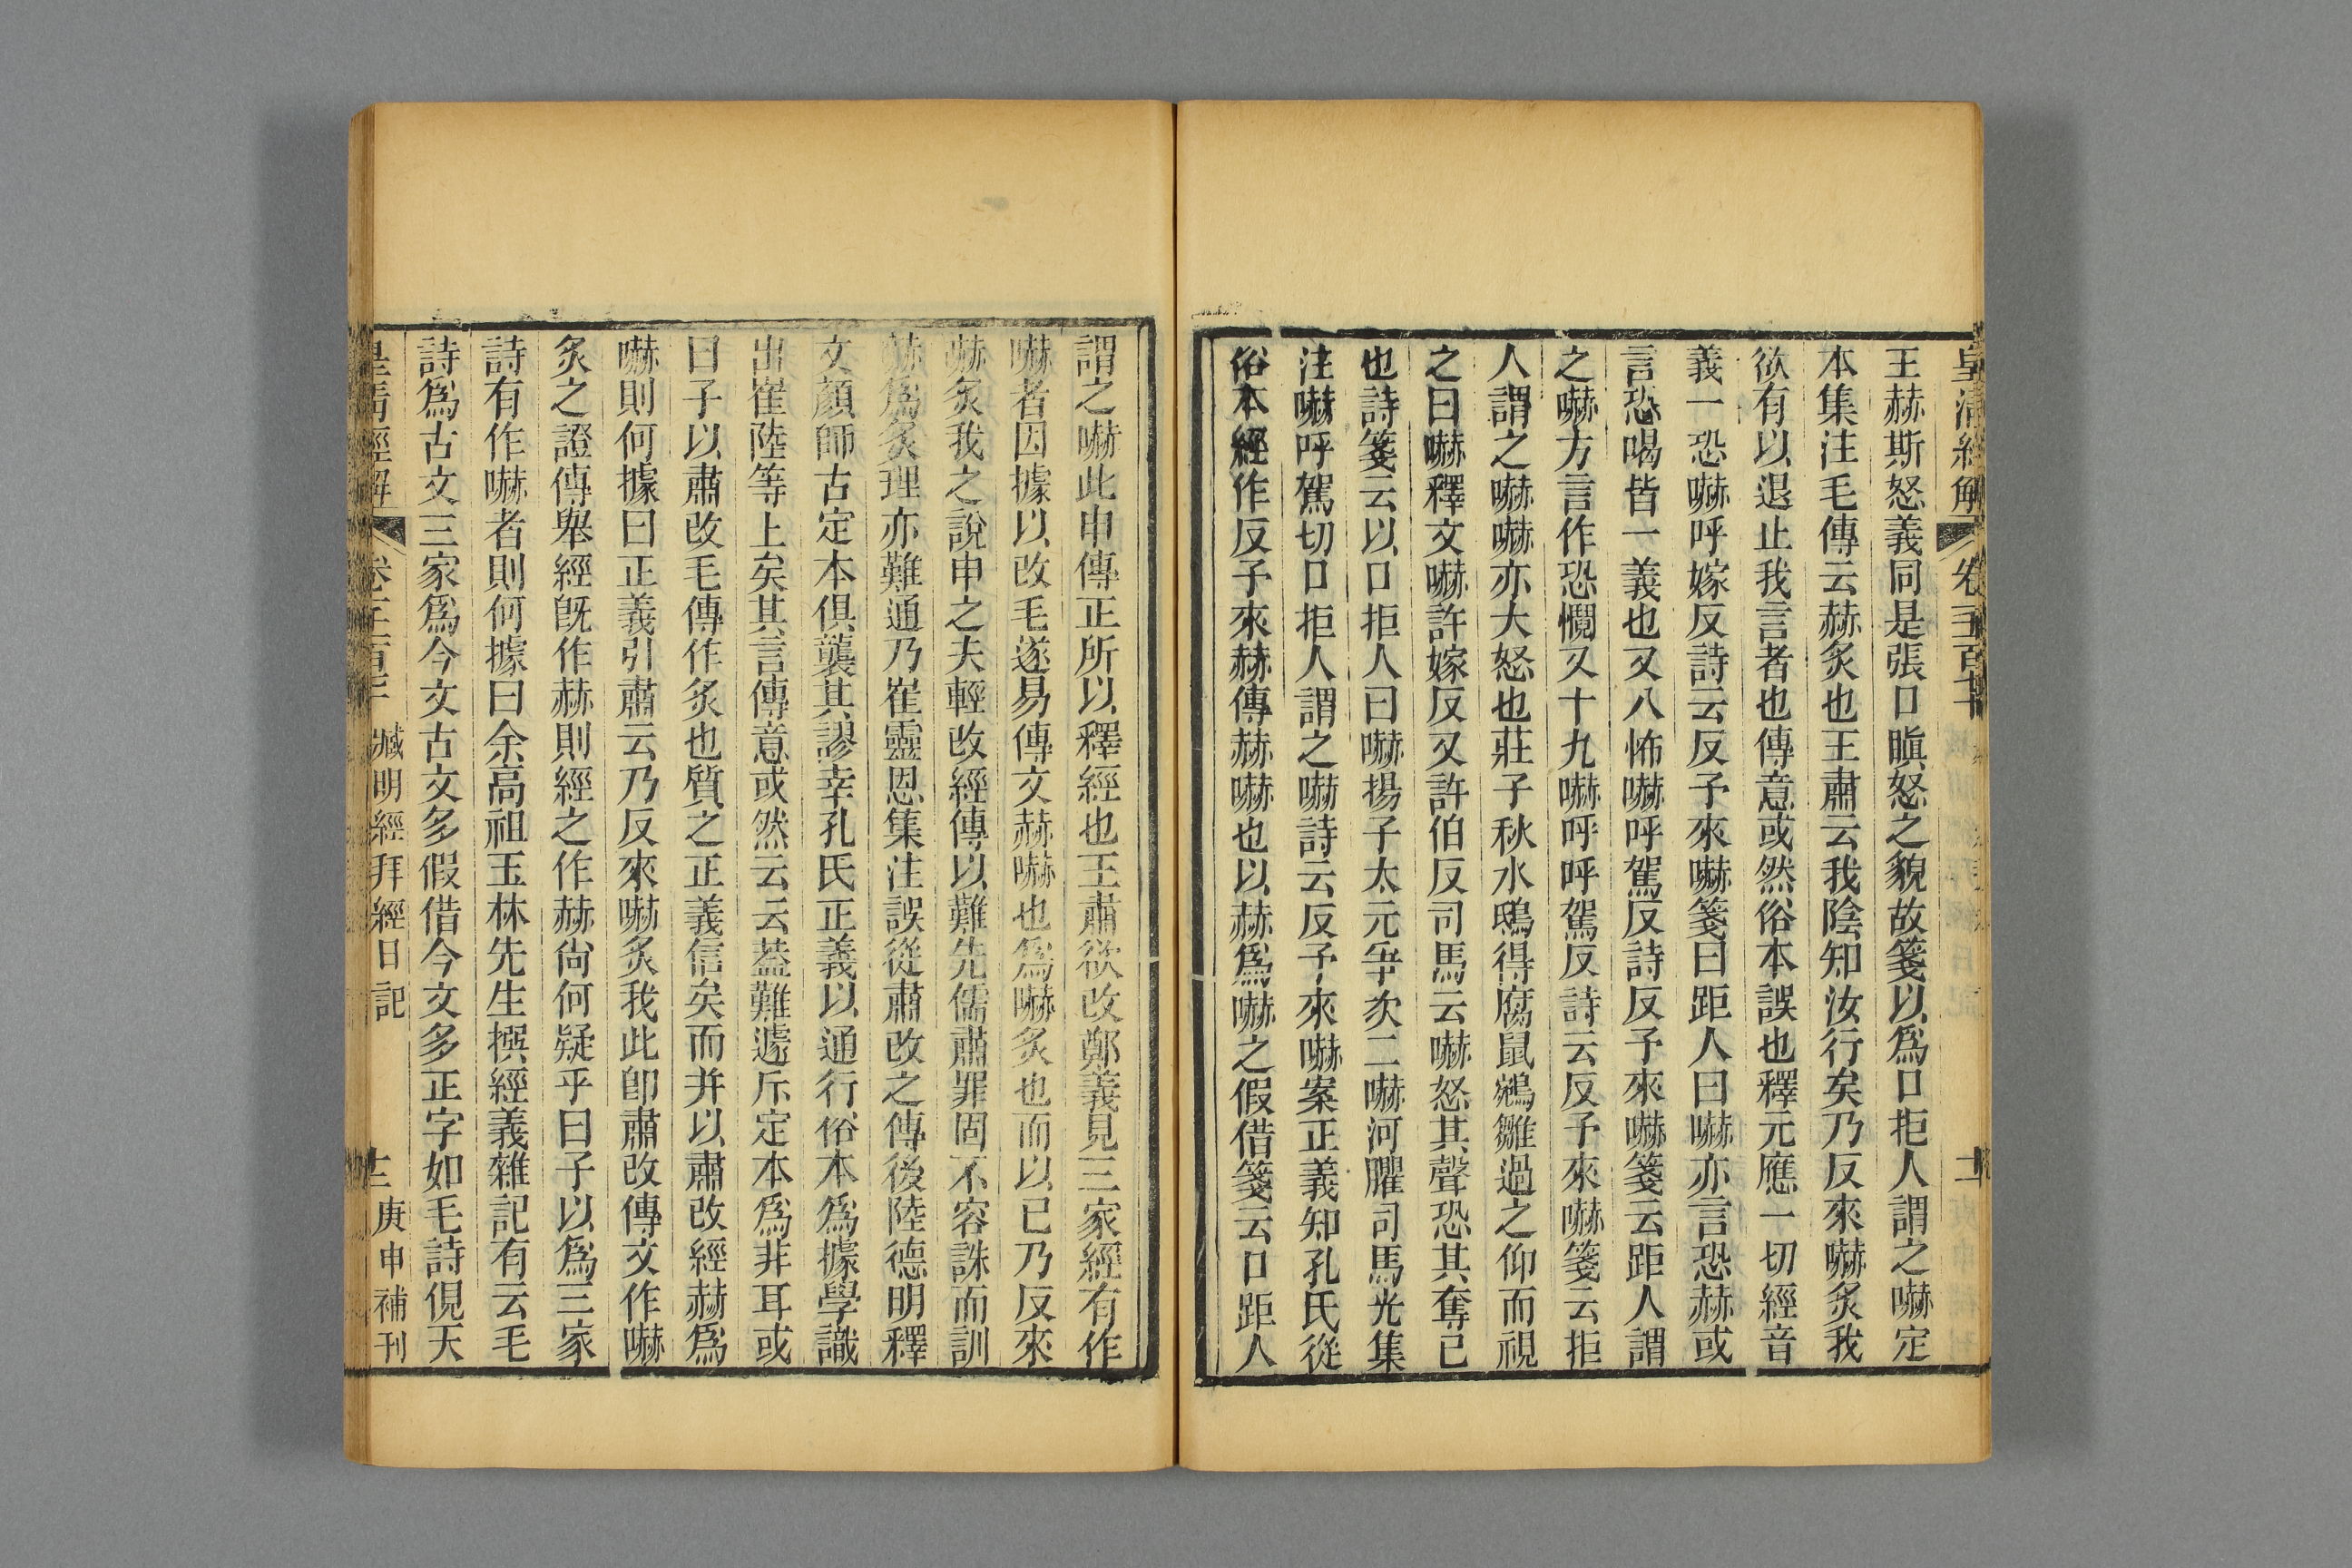 皇清經解 卷 十
王赫斯怒義同是張口瞋怒之貌故箋以爲口拒人謂之嚇定
本集注毛傳云赫炙也王肅云我陰知汝行矣乃反來嚇炙我
欲有以退止我言者也傳意或然俗本誤也釋元應一切經音
義一恐嚇呼嫁反詩云反予來嚇箋曰距人曰嚇亦言恐赫或
言恐喝皆一義也又八怖嚇呼駕反詩反予來嚇箋云距人謂
之嚇方言作恐㦬又十九嚇呼呼駕反詩云反予來嚇箋云拒
人謂之嚇嚇亦大怒也莊子秋水鴟得腐鼠鵷雛過之仰而視
之曰嚇釋文嚇許嫁反又許伯反司馬云嚇怒其聲恐其奪己
也詩箋云以口拒人曰嚇揚子太元爭次二嚇河臞司馬光集
注嚇呼駕切口拒人謂之嚇詩云反予來嚇案正義知孔氏從
俗本經作反予來赫傳赫嚇也以赫爲嚇之假借箋云口距人
謂之嚇此申傳正所以釋經也王肅欲改鄭義見三家經有作
嚇者因據以改毛遂易傳文赫嚇也爲嚇炙也而以已乃反來
嚇炙我之說申之夫輕改經傳以難先儒肅罪固不容誅而訓
赫爲炙理亦難通乃崔靈恩集注誤從肅改之傳後陸德明釋
文顏師古定本俱襲其謬幸孔氏正義以通行俗本爲據學識
出崔陸等上矣其言傳意或然云云葢難遽斥定本爲非耳或
曰子以肅改毛傳作炙也質之正義信矣而并以肅改經赫爲
嚇則何據曰正義引肅云乃反來嚇炙我此卽肅改傳文作嚇
炙之證傳舉經旣作赫則經之作赫尙何疑乎曰子以爲三家
詩有作嚇者則何據曰余高祖玉林先生撰經義雜記有云毛
詩爲古文三家爲今文古文多假借今文多正字如毛詩俔天
皇清經解 卷 臧明經拜經日記 十二 庚申補刊